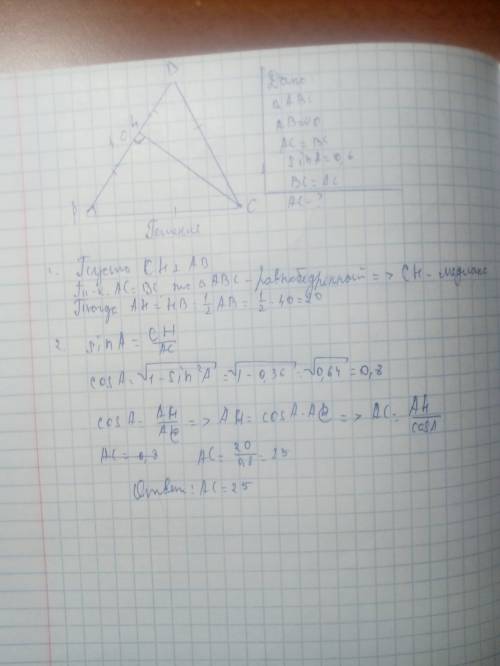 B
H
A
C
Дано
△ABC
AB=40
AC = BC
sinA=0,6
BC = AC
AC - ?
Решение
1. Пусть CH ⊥ AB
Т.к. AC=BC, то △ABC - равнобедренный => CH - медиана
Тогда AH = HB = 1/2 AB = 1/2 · 40 = 20
2. sinA = CH/AC
cosA = √(1-sin²A) = √(1-0,36) = √0,64 = 0,8
cosA = AH/AC => AH = cosA·AC => AC = AH/cosA
AC = 20/0,8 = 25
Ответ: AC = 25